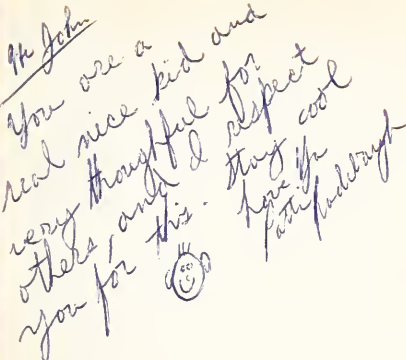 John
You are a
real nice kid and
very thoughful for
others, and I respect
you for this. Stay cool
Love Ya
Patti Radebaugh